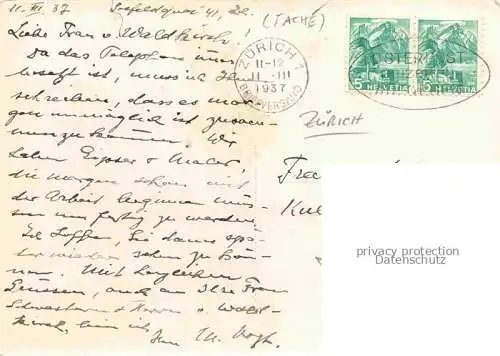 11. III. 37. Seefeldquai 41, Zch.
(TACHÉ)
Liebe Frau v. Waldkirch!
Da das Telephon immer
besetzt ist, muss ich Ihnen
schreiben, dass es mor-
gen unmöglich ist zusam-
menzukommen. Wir
haben Gipser & Maler,
die morgen schon mit
der Arbeit beginnen müs-
sen um fertig zu werden.
Ich hoffe, Sie dann spä-
ter wieder sehen zu kön-
nen. Mit herzlichen
Grüssen, auch an Ihre Frau
Schwester & Herrn v. Wald-
kirch, bin ich
Ihr M. Vogt.
ZÜRICH 1
11-12
11 -III
1937
BRIEFVERSAND
5 HELVETIA
5 HELVETIA
ZÜRICH
privacy protection
Datenschutz